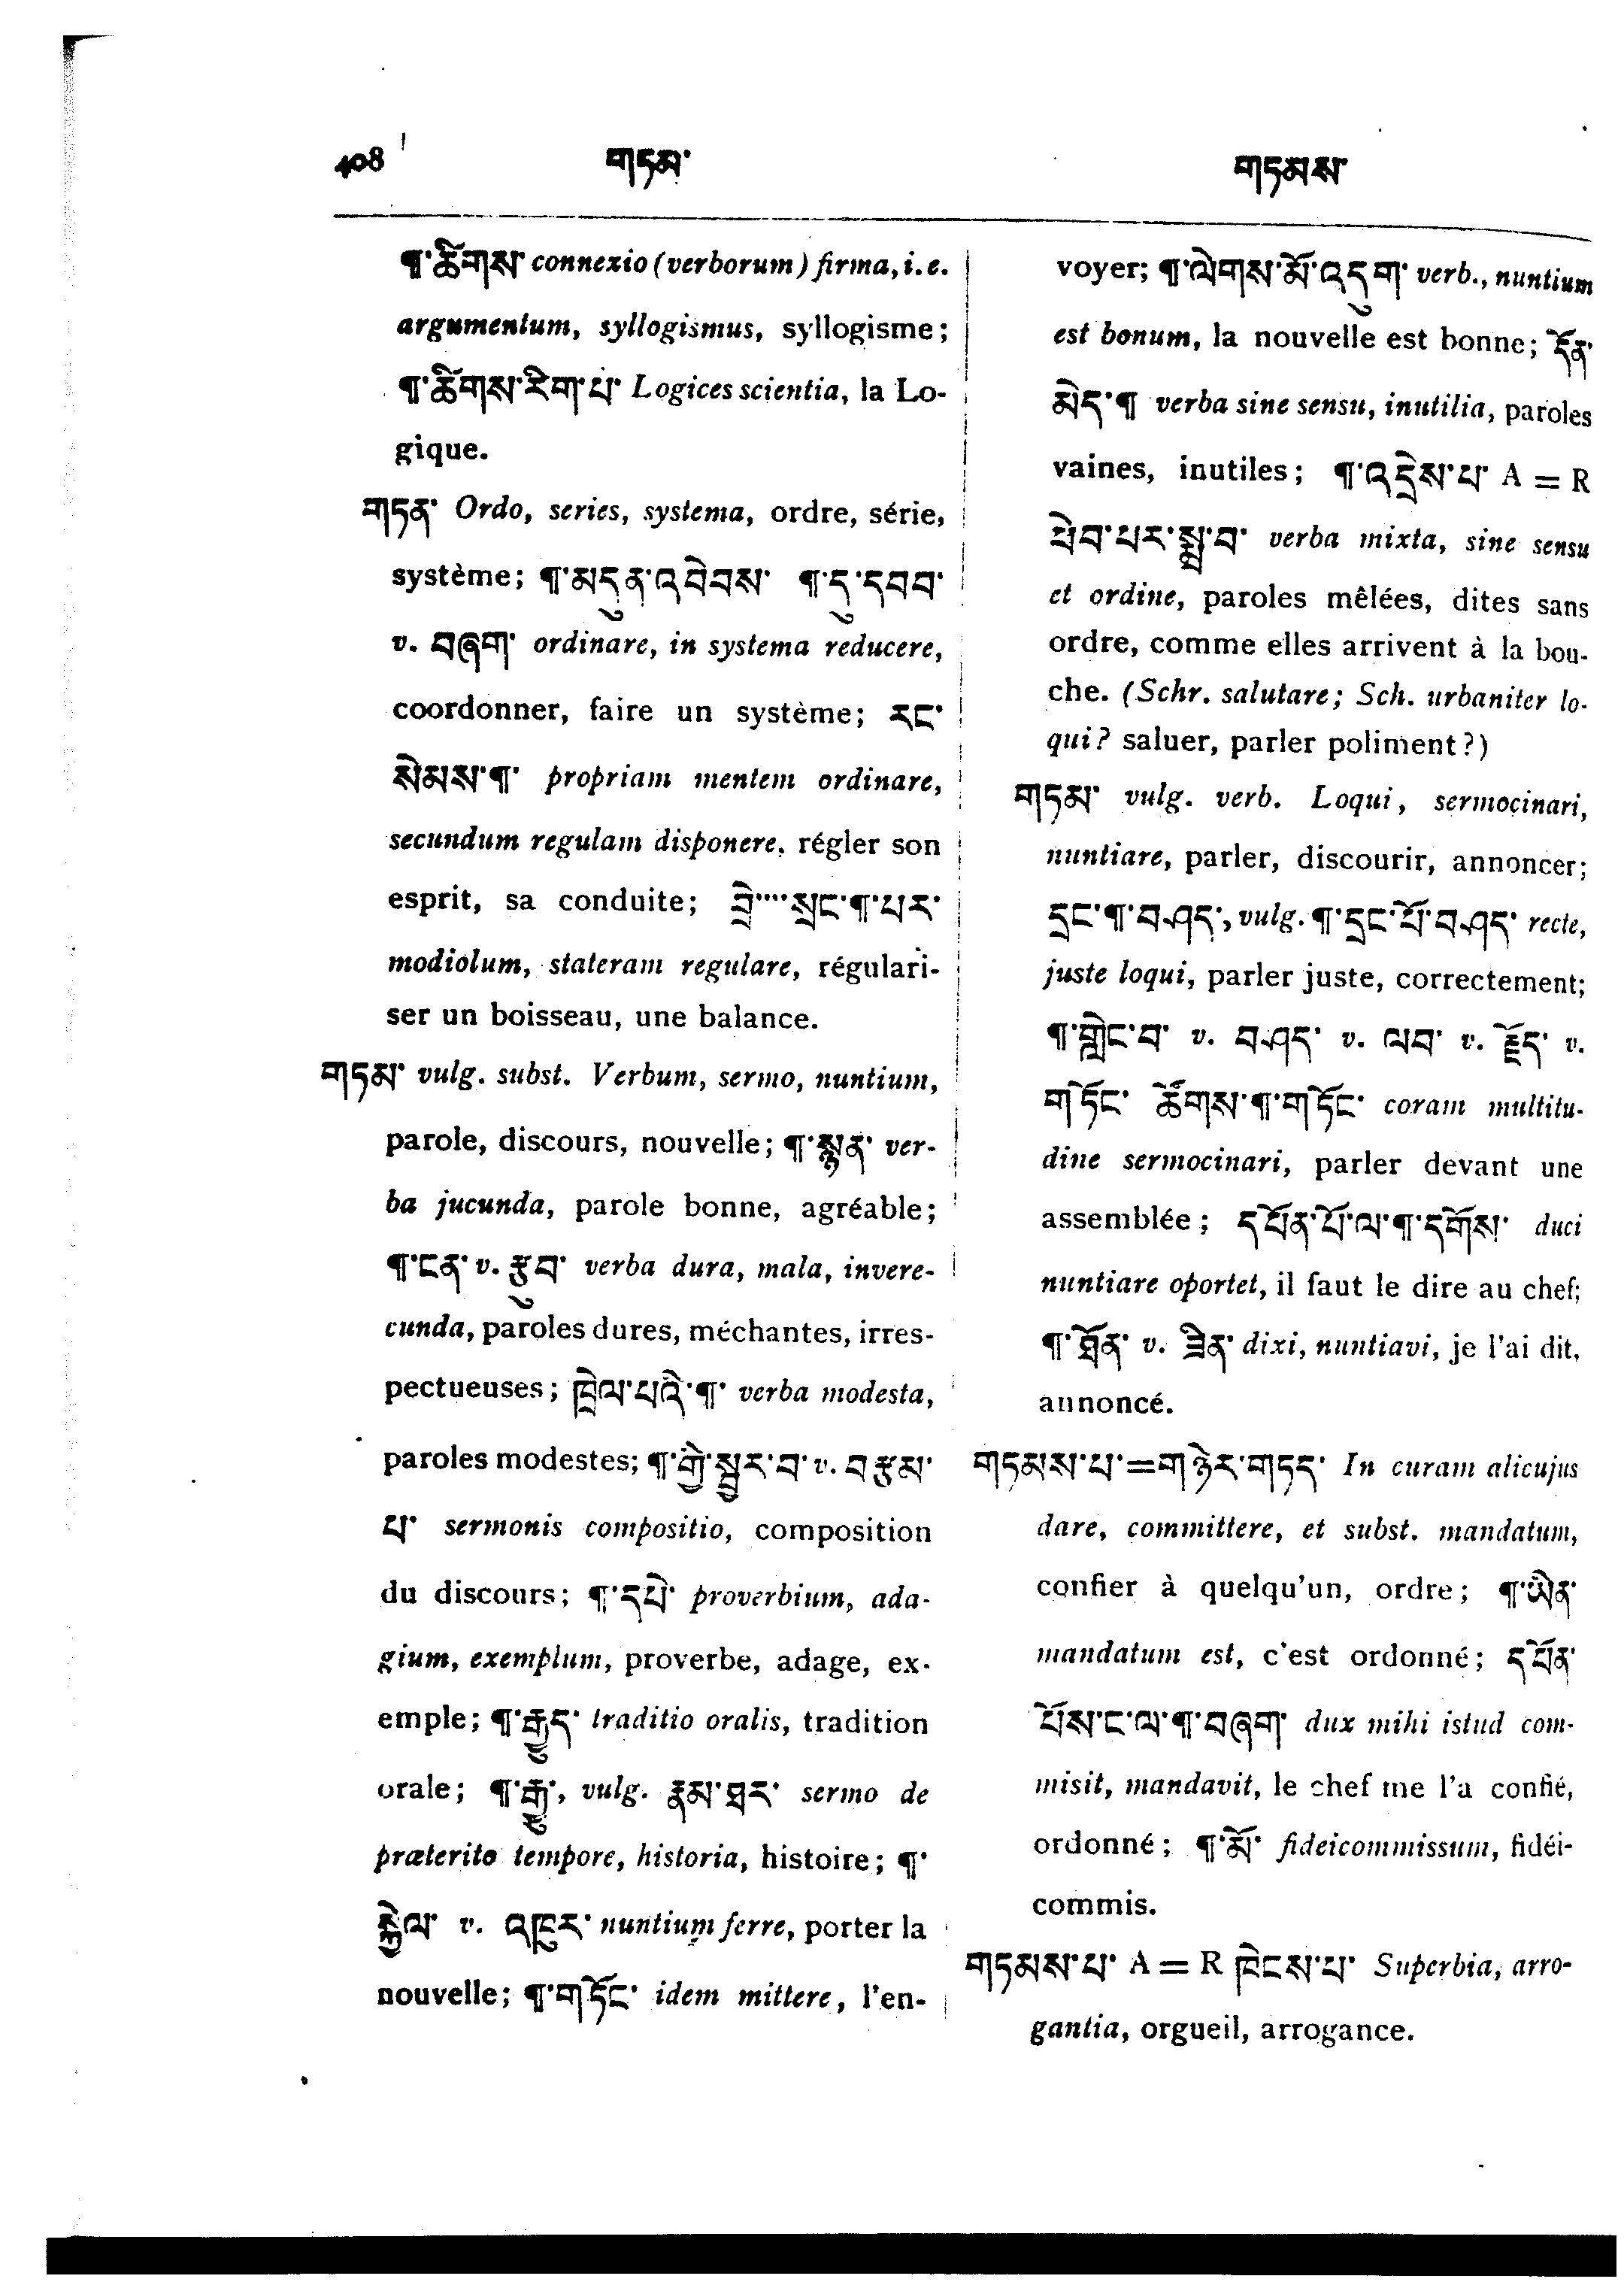 408
གཏམ་
གཏམས་
¶་ཚིགས་ connexio (verborum) firma, i. e.
argumentum, syllogismus, syllogisme;
¶་ཚིགས་རིག་པ་ Logices scientia, la Lo-
gique.
གཏན་ Ordo, series, systema, ordre, série,
système; ¶་མདུན་འབེབས་ ¶་དུ་དབབ་
v. བཞག་ ordinare, in systema reducere,
coordonner, faire un système; རང་
སེམས་¶་ propriam mentem ordinare,
secundum regulam disponere, régler son
esprit, sa conduite; བྲེ་་་་སྲང་¶་པར་
modiolum, stateram regulare, régulari-
ser un boisseau, une balance.
གཏམ་ vulg. subst. Verbum, sermo, nuntium,
parole, discours, nouvelle; ¶་སྙན་ ver-
ba jucunda, parole bonne, agréable;
¶་ངན་ v. རྩུབ་ verba dura, mala, invere-
cunda, paroles dures, méchantes, irres-
pectueuses; ཁྲེལ་པའི་¶་ verba modesta,
paroles modestes; ¶་གྱི་སྦྱར་བ་ v. བརྩམ་
པ་ sermonis compositio, composition
du discours; ¶་དཔེ་ proverbium, ada-
gium, exemplum, proverbe, adage, ex-
emple; ¶་རྒྱུད་ traditio oralis, tradition
orale; ¶་རྒྱུ་, vulg. རྣམ་ཐར་ sermo de
præterito tempore, historia, histoire; ¶་
སྐྱེལ་ v. འཁུར་ nuntium ferre, porter la
nouvelle; ¶་གཏོང་ idem mittere, l'en-
voyer; ¶་ལེགས་མོ་འདུག་ verb., nuntium
est bonum, la nouvelle est bonne; དོན་
མེད་¶ verba sine sensu, inutilia, paroles
vaines, inutiles; ¶་འདྲེས་པ་ A = R
ཕེབ་པར་སྨྲ་བ་ verba mixta, sine sensu
et ordine, paroles mêlées, dites sans
ordre, comme elles arrivent à la bou-
che. (Schr. salutare; Sch. urbaniter lo-
qui? saluer, parler poliment?)
གཏམ་ vulg. verb. Loqui, sermocinari,
nuntiare, parler, discourir, annoncer;
དྲང་¶་བཤད་, vulg. ¶་དྲང་པོ་བཤད་ recte,
juste loqui, parler juste, correctement;
¶་གླེང་བ་ v. བཤད་ v. ལབ་ v. རྗོད་ v.
གཏོང་ ཚོགས་¶་གཏོང་ coram multitu-
dine sermocinari, parler devant une
assemblée; དཔོན་པོ་ལ་¶་དགོས་ duci
nuntiare oportet, il faut le dire au chef;
¶་ཐོན་ v. ཟིན་ dixi, nuntiavi, je l'ai dit,
annoncé.
གཏམས་པ་=གཉེར་གཏད་ In curam alicujus
dare, committere, et subst. mandatum,
confier à quelqu'un, ordre; ¶་ཡིན་
mandatum est, c'est ordonné; དཔོན་
པོས་ང་ལ་¶་བཞག་ dux mihi istud com-
misit, mandavit, le chef me l'a confié,
ordonné; ¶་མོ་ fideicommissum, fidéi-
commis.
གཏམས་པ་ A = R ཁེངས་པ་ Superbia, arro-
gantia, orgueil, arrogance.